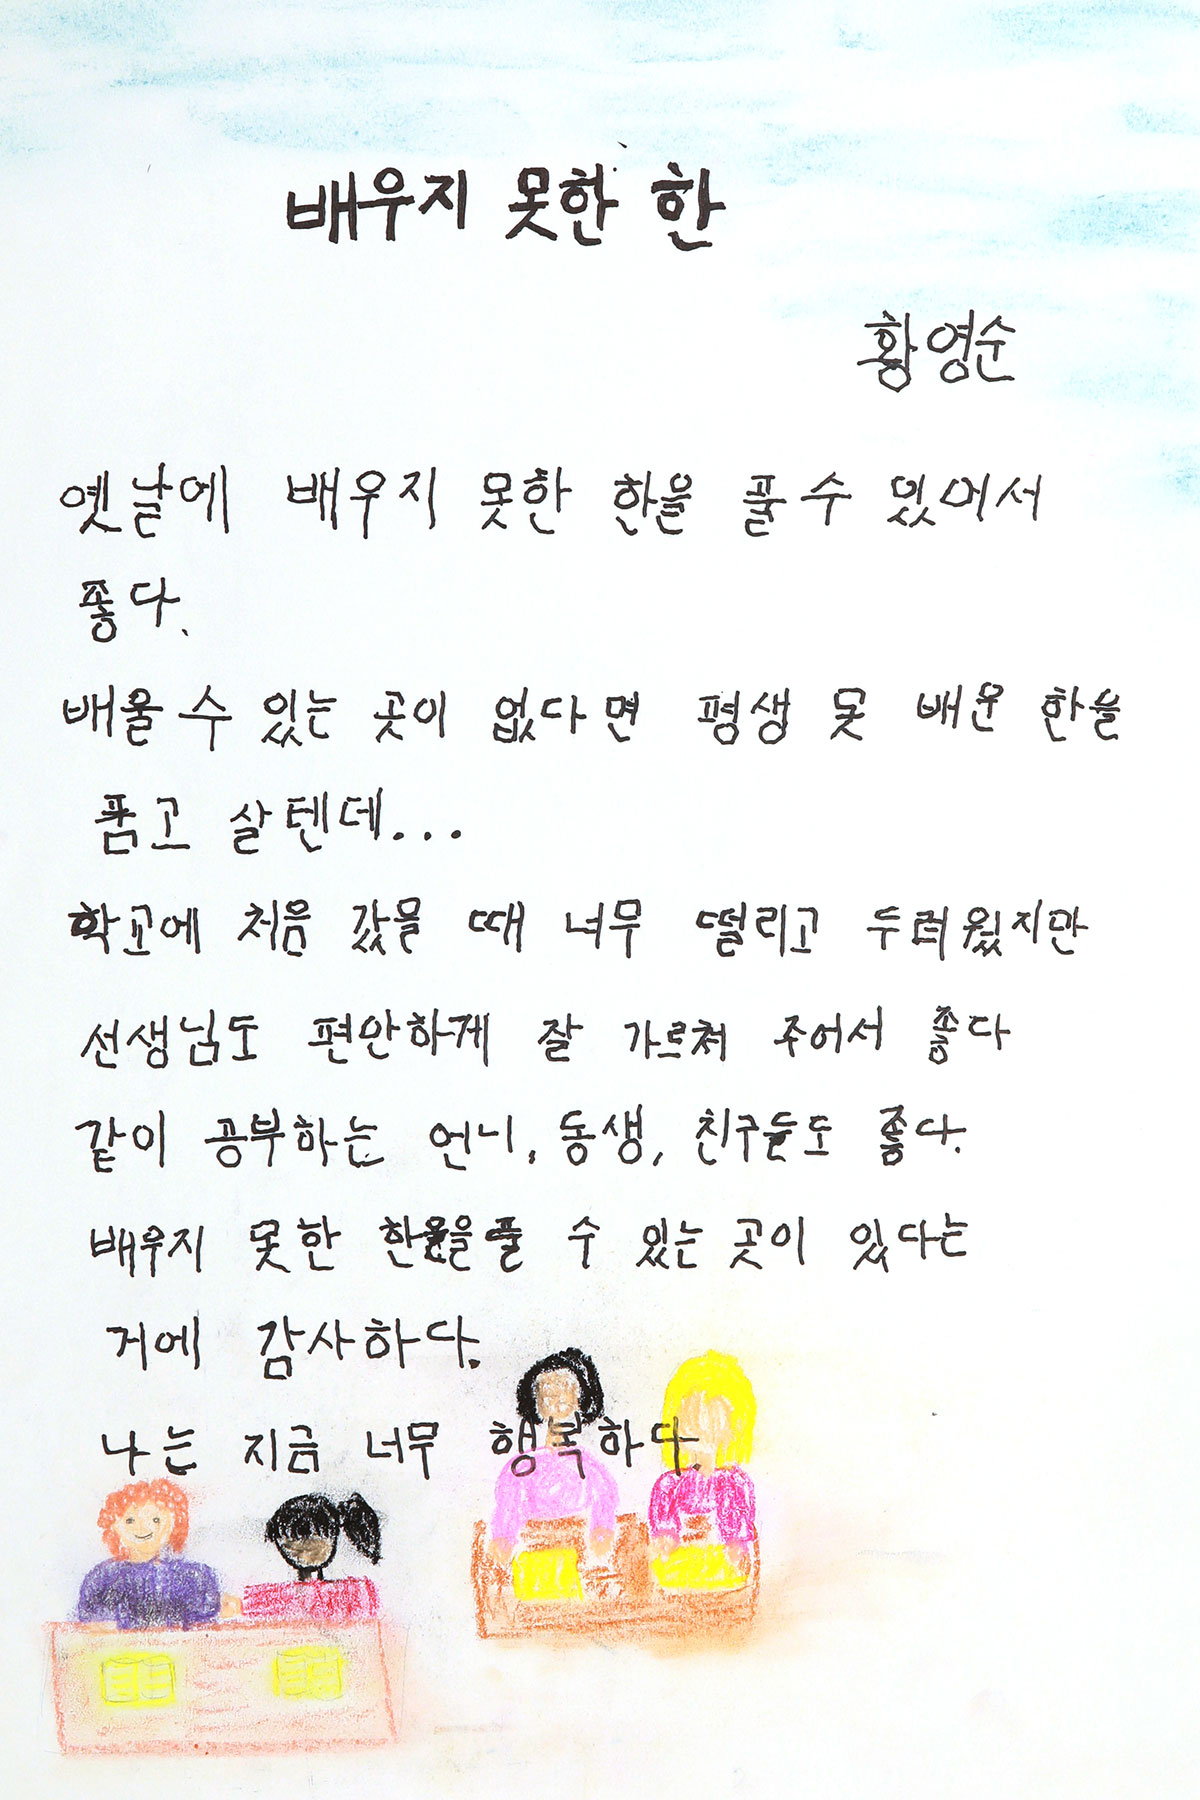 배우지 못한 한
황영순
옛날에 배우지 못한 한을 풀 수 있어서
좋다.
배울 수 있는 곳이 없다면 평생 못 배운 한을
품고 살텐데...
학교에 처음 갔을 때 너무 떨리고 두려웠지만
선생님도 편안하게 잘 가르쳐 주어서 좋다
같이 공부하는 언니, 동생, 친구들도 좋다.
배우지 못한 한을 풀 수 있는 곳이 있다는
거에 감사하다.
나는 지금 너무 행복하다.